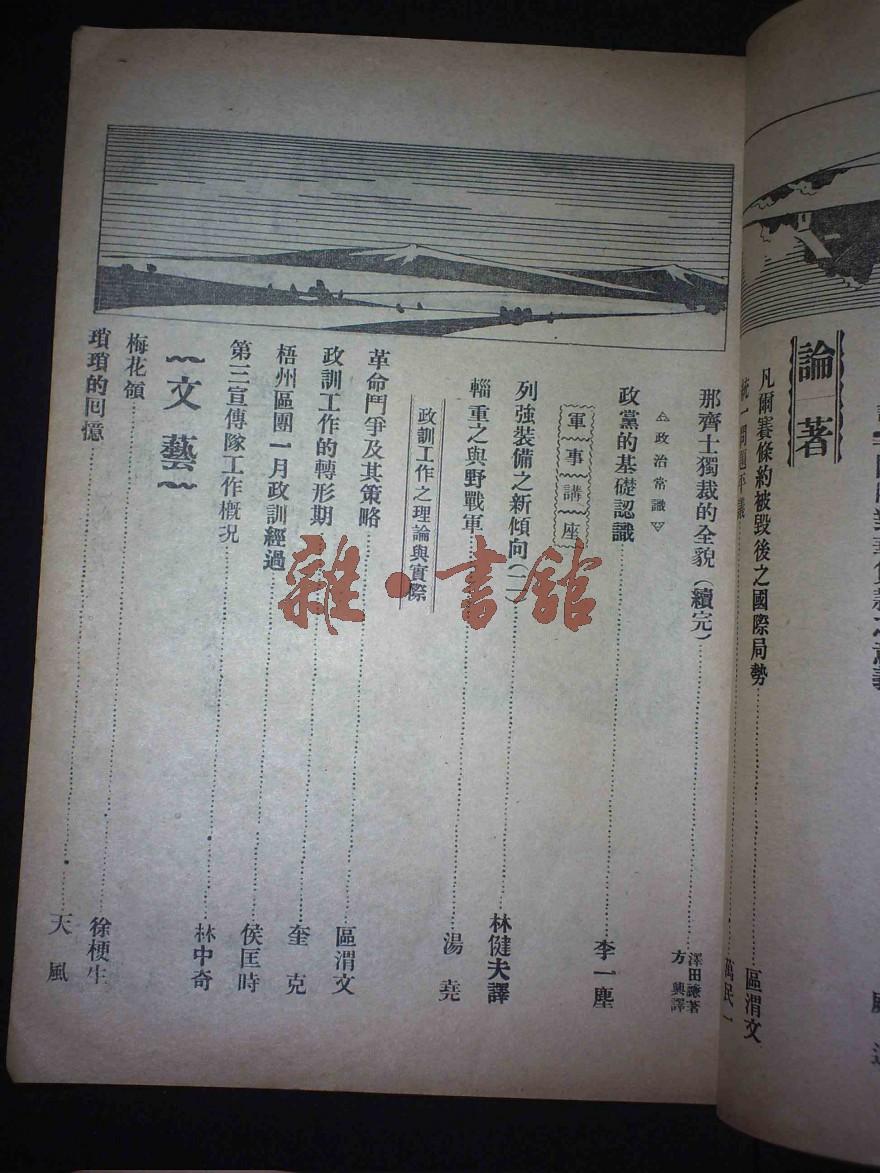 論著
凡爾賽條約被毀後之國際局勢 區渭文
統一問題平議 萬民一
那齊士獨裁的全貌(續完) 澤田謙著 方興譯
政治常識
政黨的基礎認識 李一塵
軍事講座
列強裝備之新傾向(二) 林健夫譯
輜重之與野戰軍 湯堯
政訓工作之理論與實際
革命鬥爭及其策略 區渭文
政訓工作的轉形期 奎克
梧州區團一月政訓經過 侯匡時
第三宣傳隊工作概况 林中奇
文藝
梅花領 徐梗生
瑣瑣的回憶 天風
雜·書館